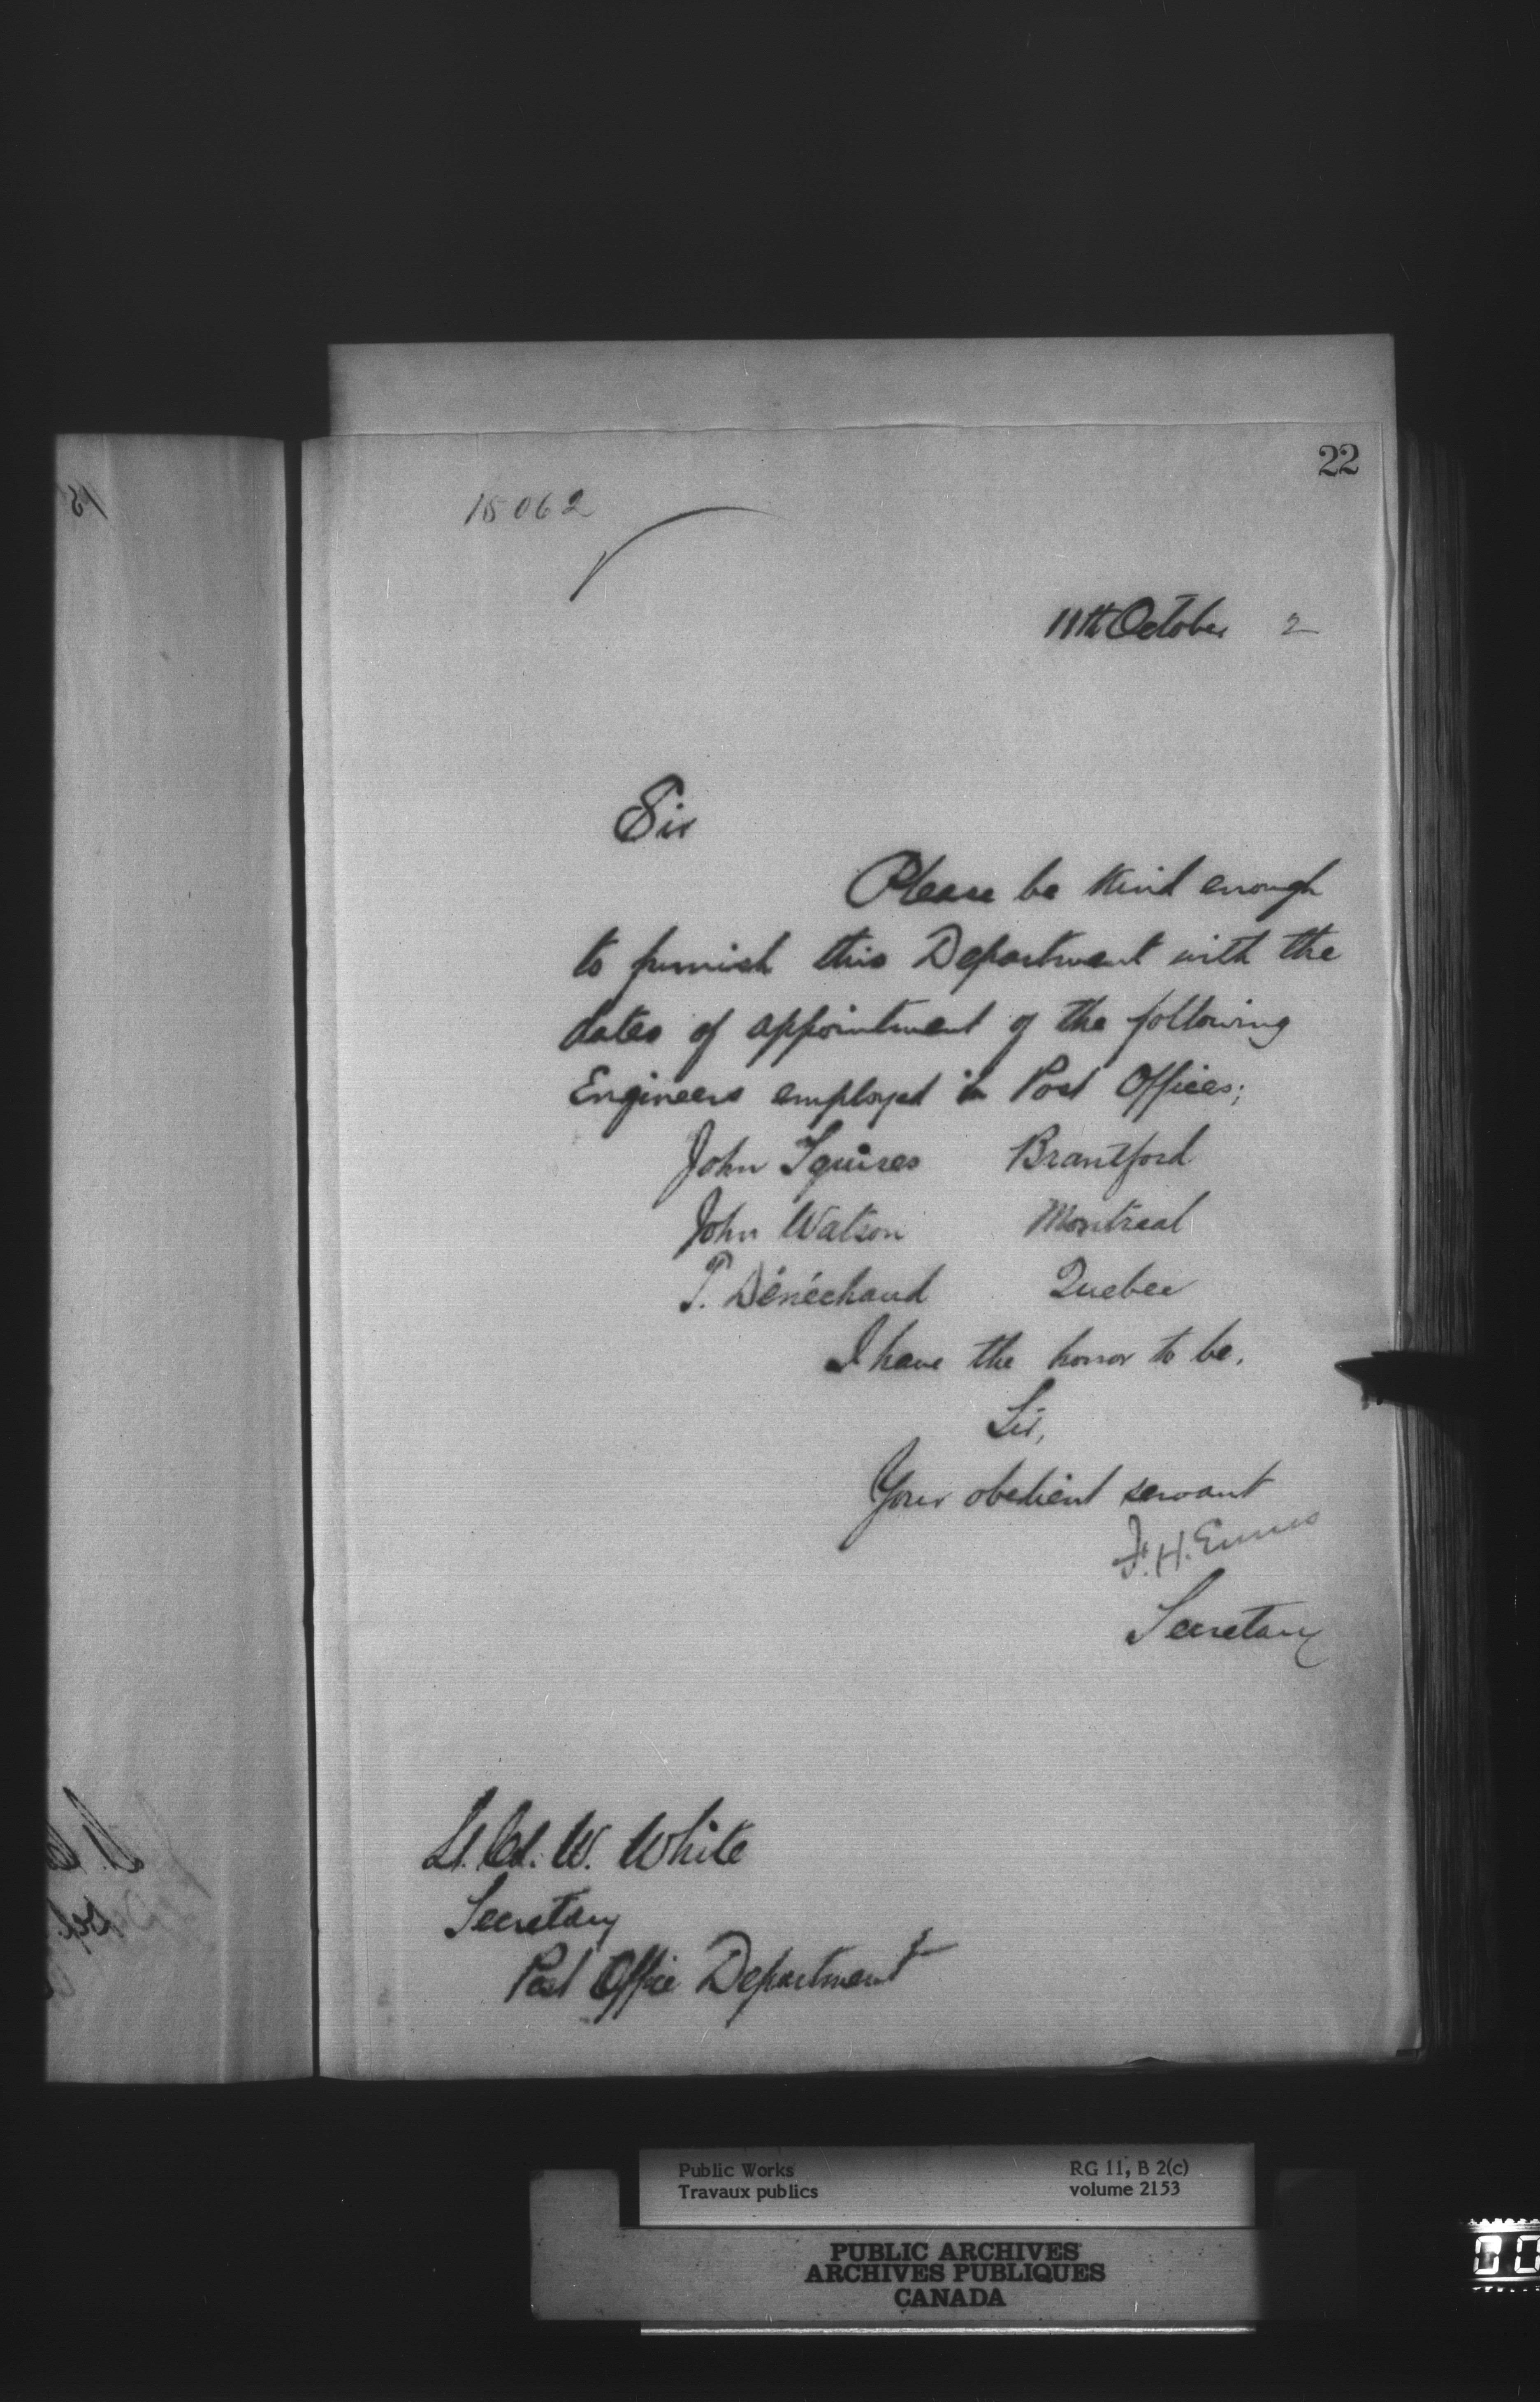 22
15062
11th October 2
Sir
Please be kind enough
to furnish this Department with the
dates of appointment of the following
Engineers employed in Post Offices;
John Squires Brantford
John Watson Montreal
P. Dénéchaud Quebec
I have the honor to be,
Sir,
Your obedient servant
F. H. Ennis
Secretary
Lt. Col. W. White
Secretary
Post Office Department
Public Works RG 11, B 2(c)
Travaux publics volume 2153
PUBLIC ARCHIVES
ARCHIVES PUBLIQUES
CANADA